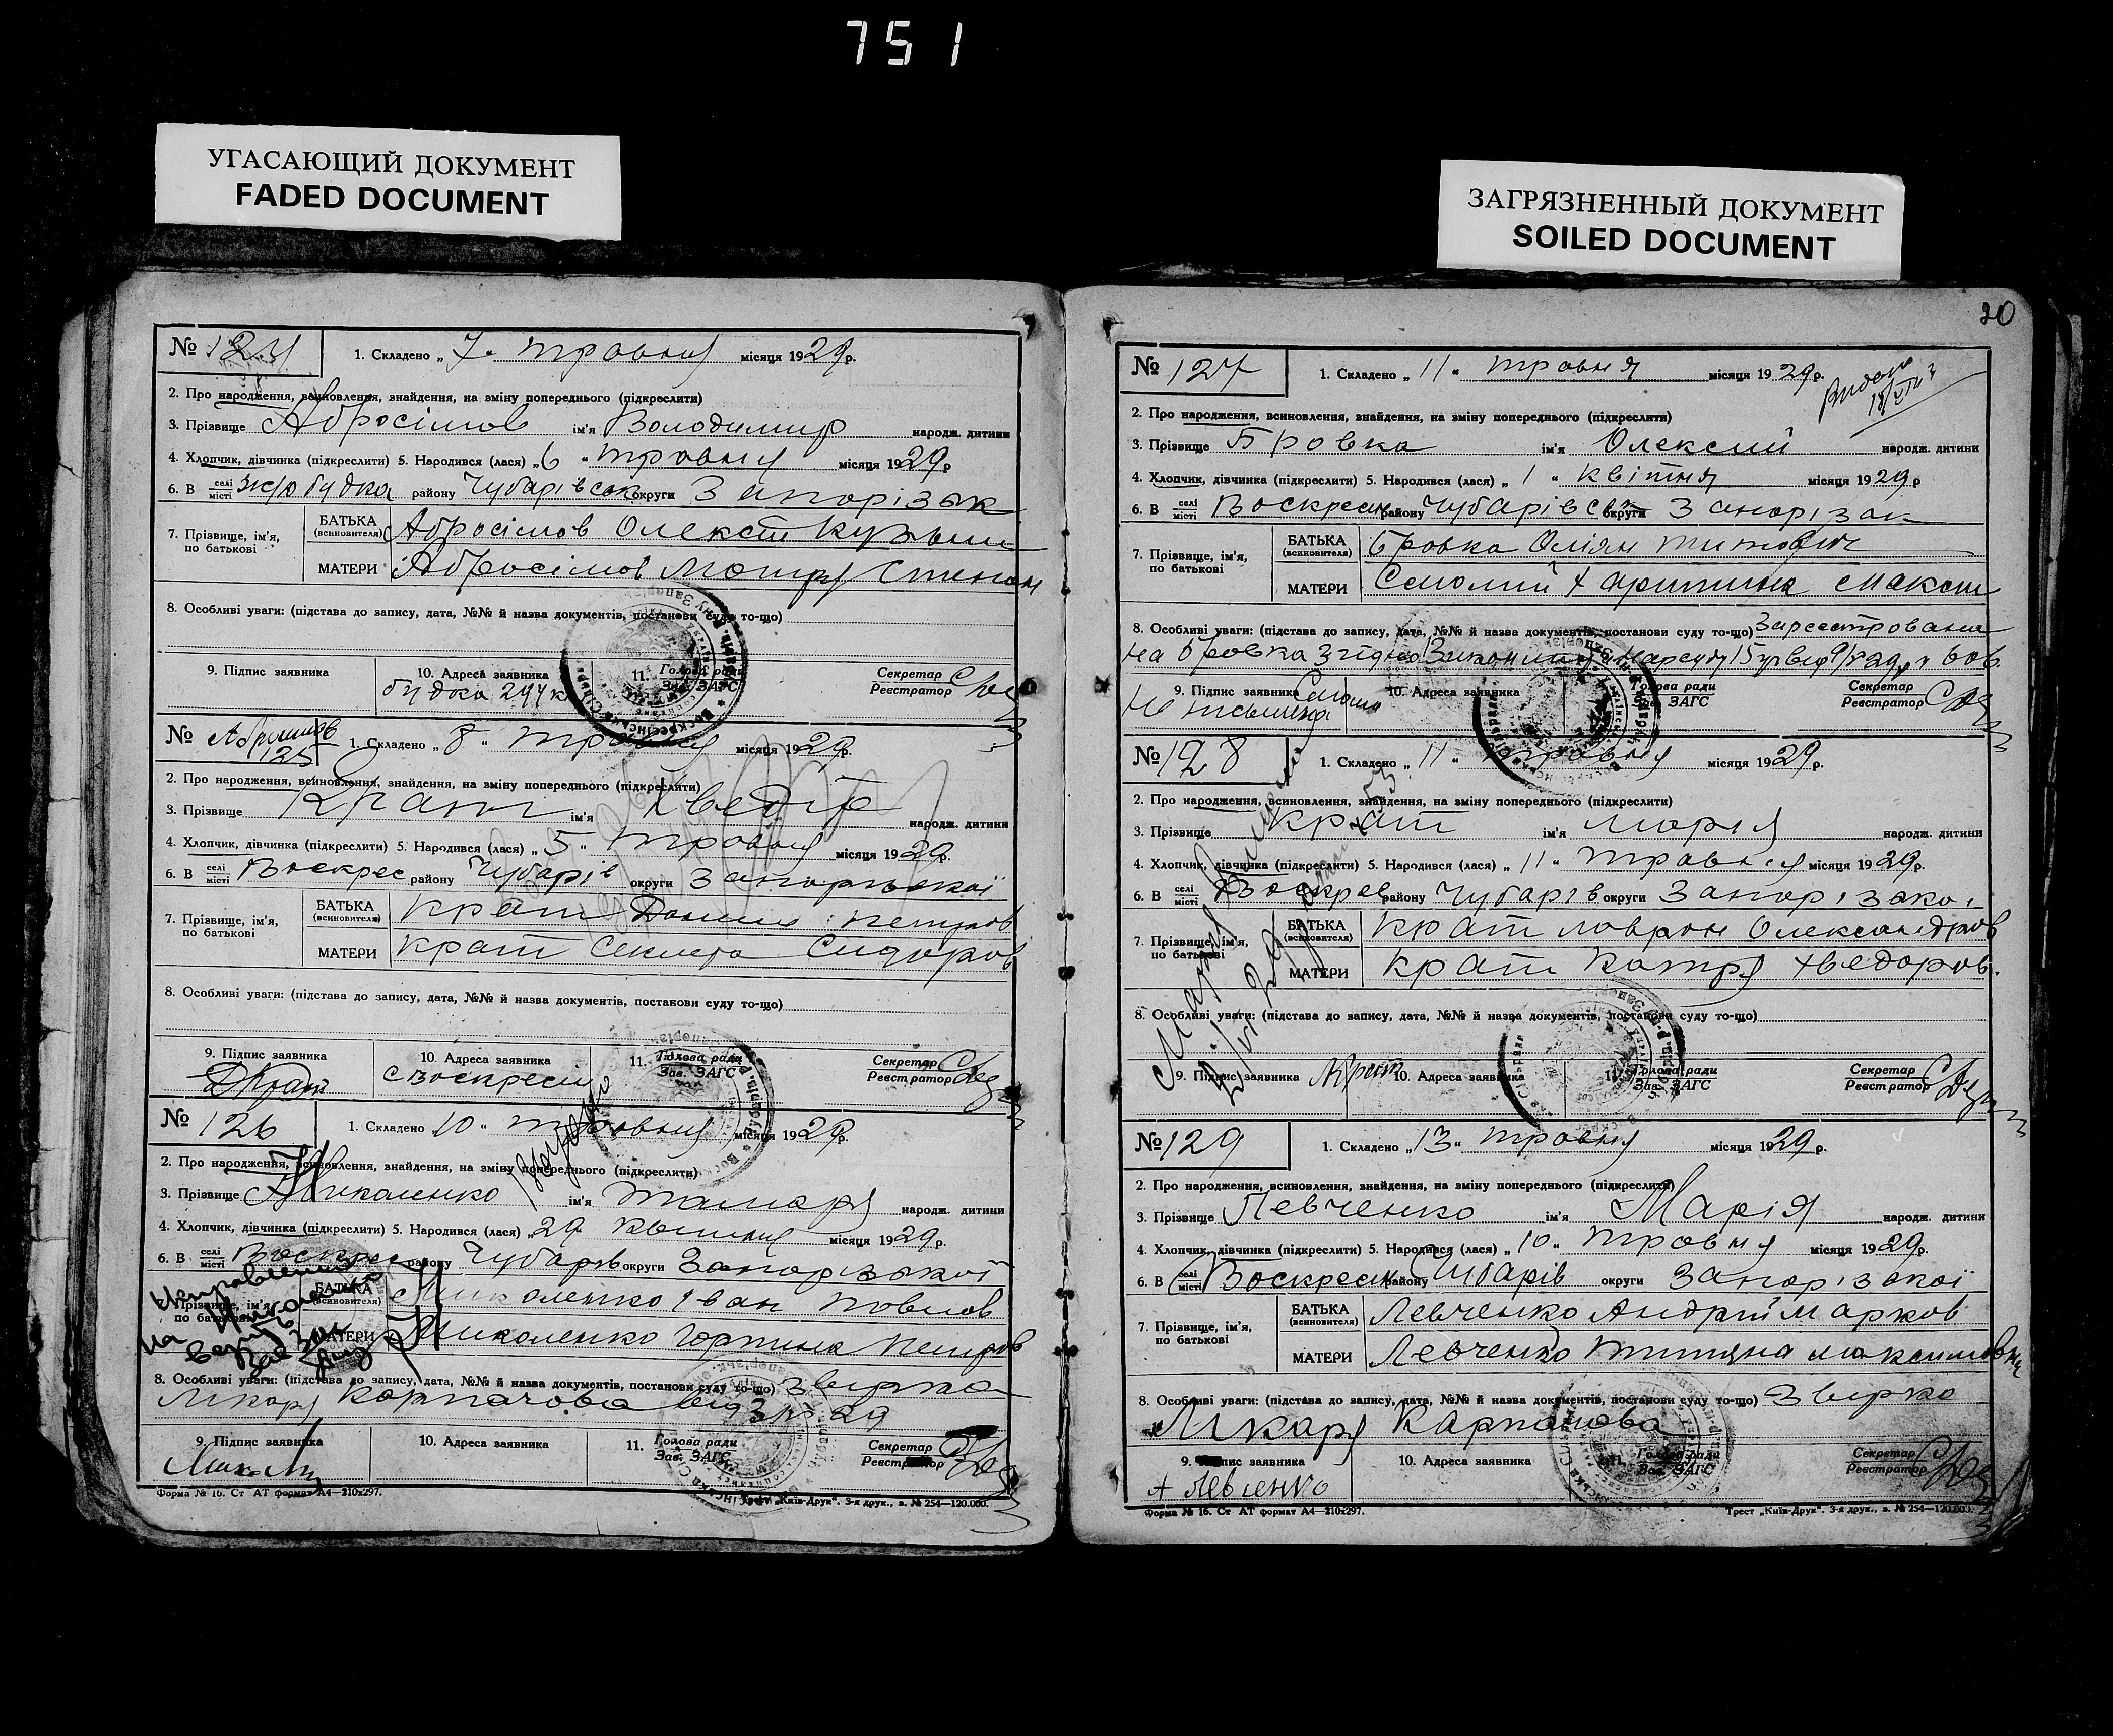 751
УГАСАЮЩИЙ ДОКУМЕНТ
FADED DOCUMENT
ЗАГРЯЗНЕННЫЙ ДОКУМЕНТ
SOILED DOCUMENT
№ 124 1. Складено „ 7 “ травня місяця 1929 р.
2. Про народження, всиновлення, знайдення, на зміну попереднього (підкреслити)
3. Прізвище Абросімов ім'я Володимир народж. дитини
4. Хлопчик, дівчинка (підкреслити) 5. Народився (лася) „ 6 “ травня місяця 1929 р
6. В селі місті будка району Чубарівськ округи Запорізьк
7. Прізвище, ім'я, по батькові
БАТЬКА (всиновителя) Абросімов Олексій Кузьмич
МАТЕРИ Абросімов Мотря Степан
8. Особливі уваги: (підстава до запису, дата, №№ й назва документів, постанови суду то-що)
9. Підпис заявника 10. Адреса заявника 11. Голова ради Зав. ЗАГС Секретар Реєстратор
будка 244 к
№ 125 1. Складено „ 8 “ травня місяця 1929 р.
2. Про народження, всиновлення, знайдення, на зміну попереднього (підкреслити)
3. Прізвище Крат ім'я Хведір народж. дитини
4. Хлопчик, дівчинка (підкреслити) 5. Народився (лася) „ 5 “ травня місяця 1929 р.
6. В селі місті Воскрес району Чубарів округи Запорізької
7. Прізвище, ім'я, по батькові
БАТЬКА (всиновителя) Крат Данило Петров
МАТЕРИ Крат Секлета Сидоров
8. Особливі уваги: (підстава до запису, дата, №№ й назва документів, постакови суду то-що)
9. Підпис заявника 10. Адреса заявника 11. Голова ради Зав. ЗАГС Секретар Реєстратор
ДКрат с Воскресен
№ 126 1. Складено „ 10 “ травня місяця 1929 р.
2. Про народження, всиновлення, знайдення, на зміну попереднього (підкреслити)
3. Прізвище Николенко ім'я Тамара народж. дитини
4. Хлопчик, дівчинка (підкреслити) 5. Народився (лася) „ 29 квітня місяця 1929 р.
6. В селі місті Воскрес району Чубарів округи Запорізької
7. Прізвище, ім'я, по батькові
БАТЬКА (всиновителя) Миколенко Іван Павлов
МАТЕРИ Миколенко Горпина Петров
8. Особливі уваги: (підстава до запису, дата, №№ й назва документів, постанови суду то-що)
лікаря Карпачова від
9. Підпис заявника 10. Адреса заявника 11. Голова ради Зав. ЗАГС Секретар Реєстратор
Форма № 16. Ст АТ формат А4—210x297. Трест „Київ-Друк“. 3-я друк., з. № 254—120.000.
20
№ 127 1. Складено „ 11 “ травня місяця 1929 р.
2. Про народження, всиновлення, знайдення, на зміну попереднього (підкреслити)
3. Прізвище Бровка ім'я Олексий народж. дитини
4. Хлопчик, дівчинка (підкреслити) 5. Народився (лася) „ 1 “ квітня місяця 1929 р
6. В селі місті Воскресен району Чубарівськ округи Запорізьк
7. Прізвище, ім'я, по батькові
БАТЬКА (всиновителя) Бровка Оліян Титович
МАТЕРИ Семолий Харитина Максим
8. Особливі уваги: (підстава до запису, дата, №№ й назва документів, постанови суду то-що) Зареєстрована
на Бровка згідно
9. Підпис заявника 10. Адреса заявника Голова ради Зав. ЗАГС Секретар Реєстратор
№ 128 1. Складено „ 11 “ травня місяця 1929 р.
2. Про народження, всиновлення, знайдення, на зміну попереднього (підкреслити)
3. Прізвище Крат ім'я Марія народж. дитини
4. Хлопчик, дівчинка (підкреслити) 5. Народився (лася) „ 11 “ травня місяця 1929 р.
6. В селі місті Воскрес району Чубарів округи Запорізької
7. Прізвище, ім'я, по батькові
БАТЬКА (всиновителя) Крат Лаврин Олександров
МАТЕРИ Крат Катря Хведоров.
8. Особливі уваги: (підстава до запису, дата, №№ й назва документів, постанови суду то-що)
9. Підпис заявника Крат 10. Адреса заявника 11. Голова ради Зав. ЗАГС Секретар Реєстратор
№ 129 1. Складено „ 13 “ травня місяця 1929 р.
2. Про народження, всиновлення, знайдення, на зміну попереднього (підкреслити)
3. Прізвище Левченко ім'я Марія народж. дитини
4. Хлопчик, дівчинка (підкреслити) 5. Народився (лася) „ 10 “ травня місяця 1929 р.
6. В селі місті Воскресен району Чубарів округи Запорізької
7. Прізвище, ім'я, по батькові
БАТЬКА (всиновителя) Левченко Андрій Марков
МАТЕРИ Левченко Тетяна Максимовна
8. Особливі уваги: (підстава до запису, дата, №№ й назва документів, постанови суду то-що)
Лікаря Карпачова
9. Підпис заявника 10. Адреса заявника Голова ради Зав. ЗАГС Секретар Реєстратор
А Левченко
Форма № 16. Ст АТ формат А4—210x297. Трест „Київ-Друк“. 3-я друк., з. № 254—120.000.